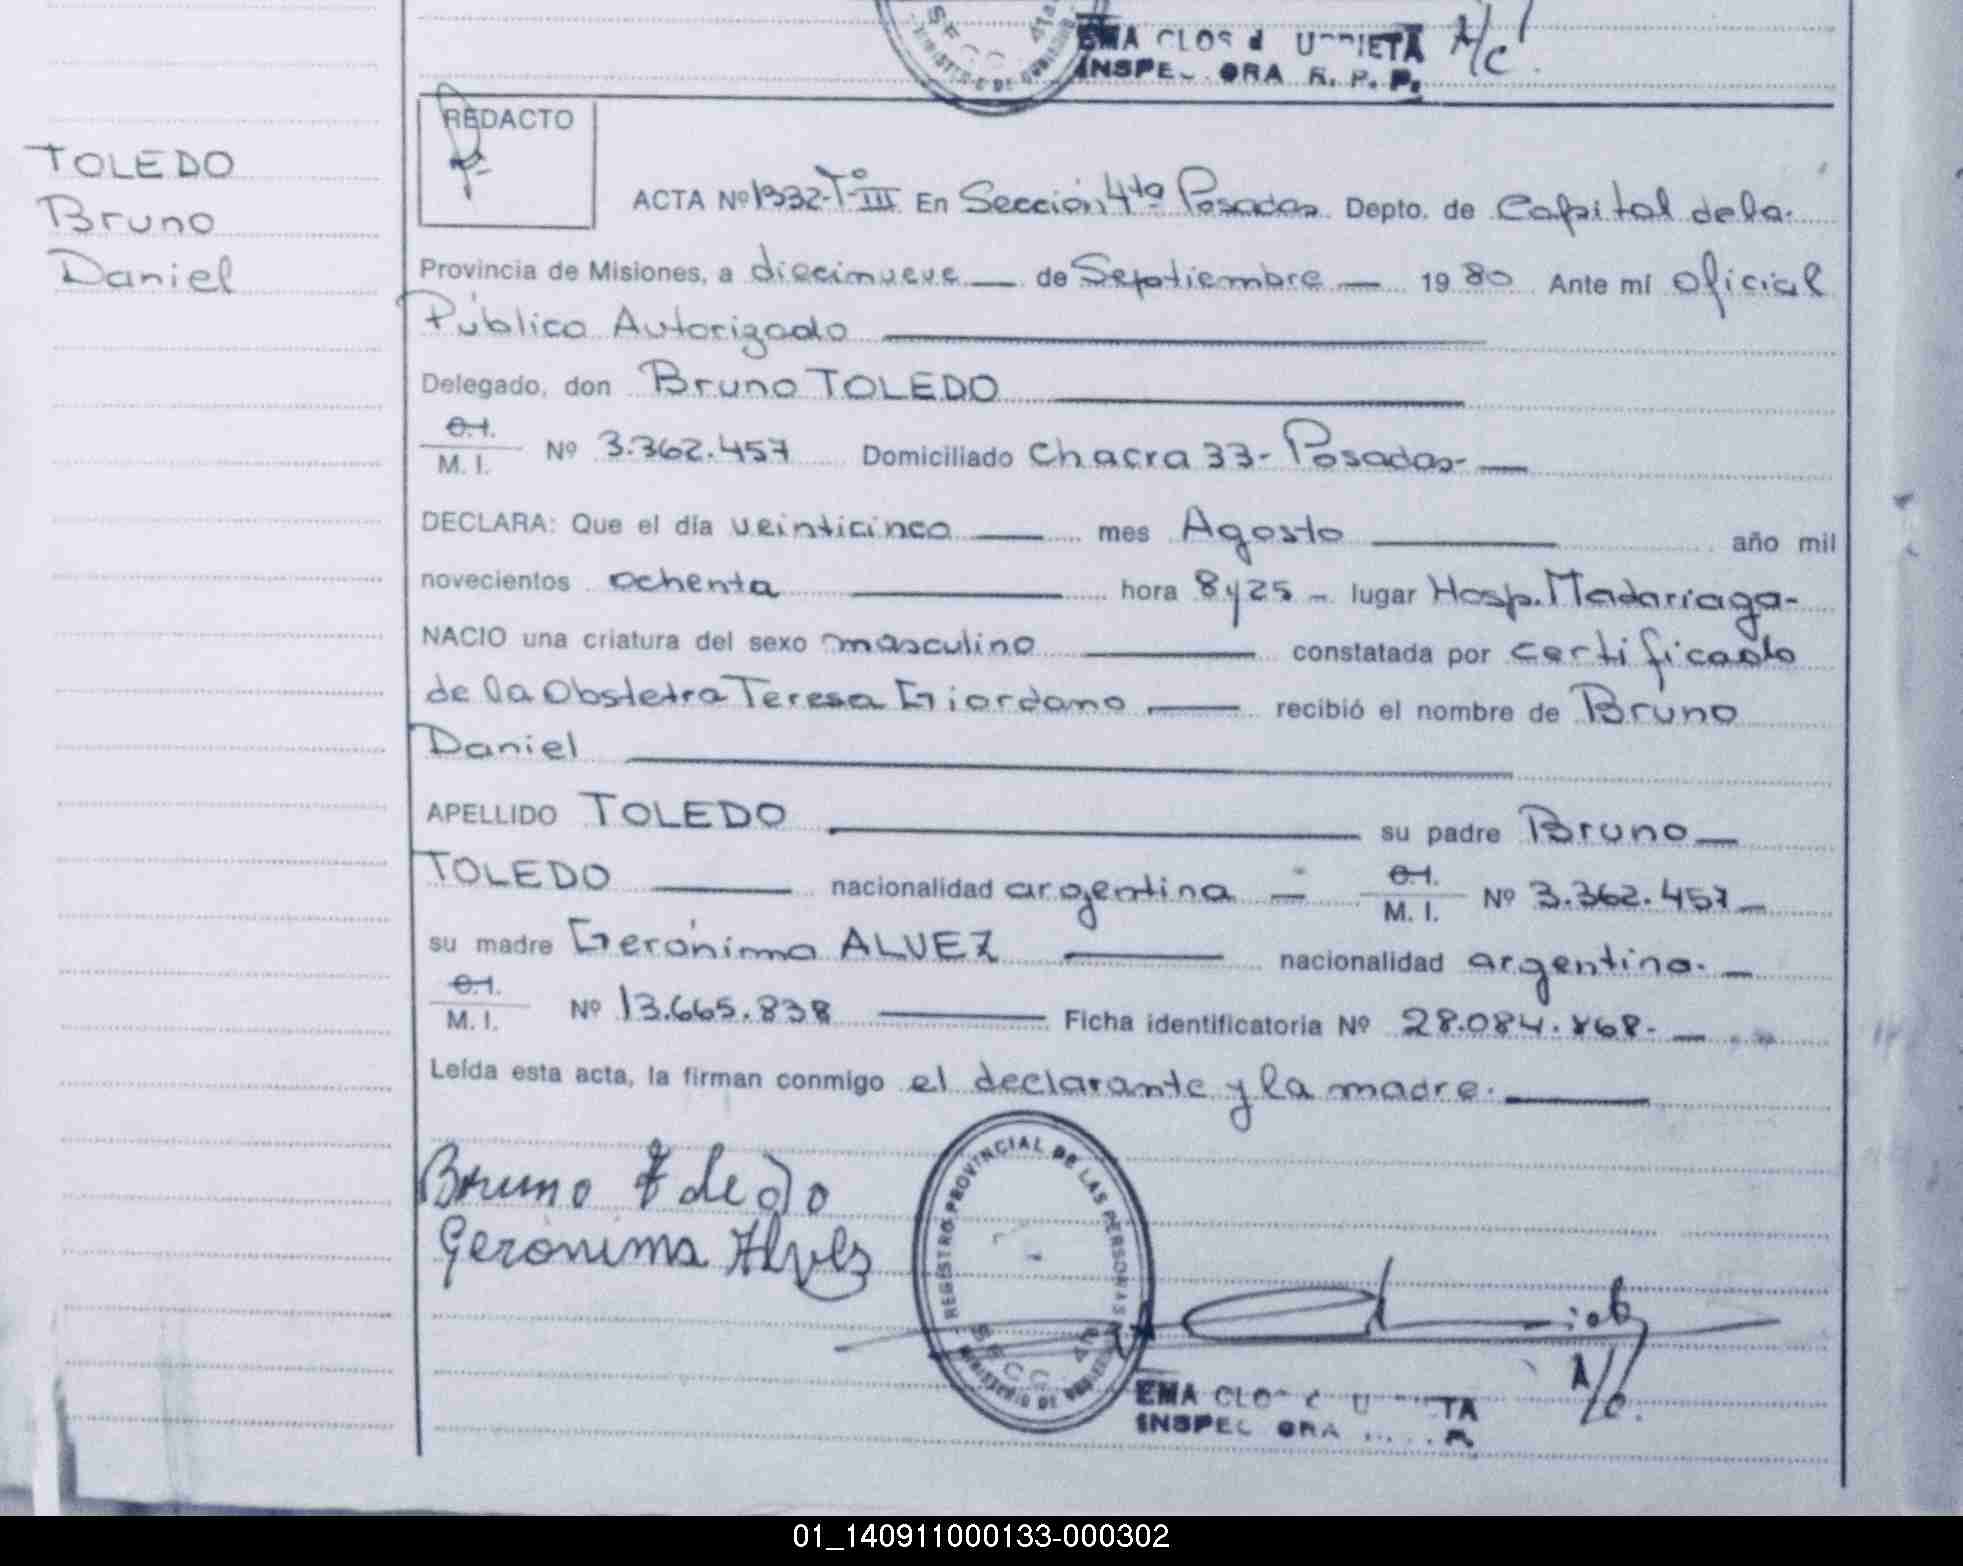 EMA CLOS
INSPE ORA R. P. P.
A/c.
REDACTO
TOLEDO
Bruno
Daniel
ACTA Nº 1332-Tº III En Sección 4ta Posadas Depto. de Capital de la
Provincia de Misiones, a diecinueve — de Septiembre — 1980 Ante mí Oficial
Público Autorizado
Delegado, don Bruno TOLEDO
C.I.
M. I. Nº 3.362.457 Domiciliado Chacra 33- Posadas- —
DECLARA: Que el día veinticinco — mes Agosto — año mil
novecientos ochenta — hora 8 y 25 - lugar Hosp. Madariaga-
NACIO una criatura del sexo masculino — constatada por certificado
de la Obstetra Teresa Giordano — recibió el nombre de Bruno
Daniel
APELLIDO TOLEDO — su padre Bruno —
TOLEDO — nacionalidad argentina — M. I. Nº 3.362.457 —
su madre Gerónima ALVEZ — nacionalidad argentina. —
M. I. Nº 13.665.838 — Ficha identificatoria Nº 28.084.868. —
Leída esta acta, la firman conmigo el declarante y la madre. —
Bruno Toledo
Gerónima Alvez
REGISTRO PROVINCIAL DE LAS PERSONAS
SECC 4ta
MINISTERIO DE GOBIERNO
A/c.
EMA CLO
INSPEC ORA
01_140911000133-000302